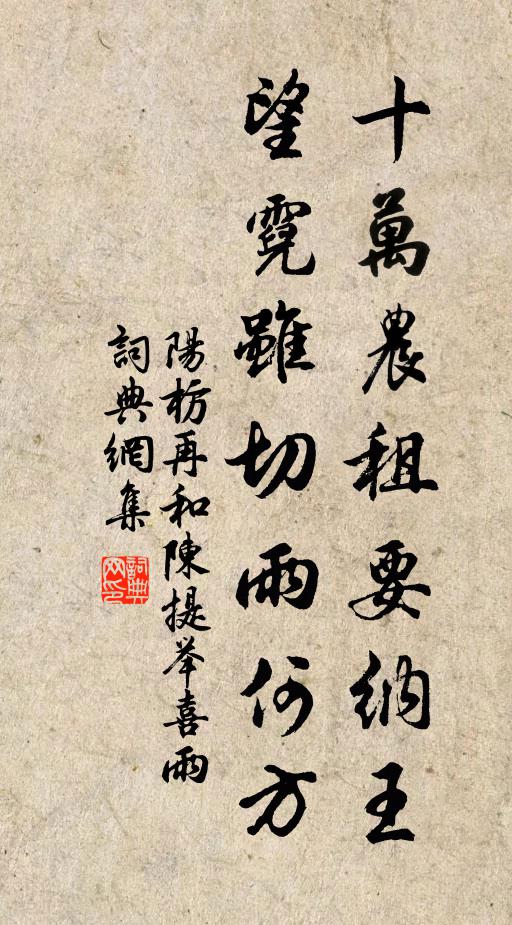 十萬農租要納王
望霓雖切雨何方
陽枋再和陳提举喜雨
詞典網集
詞典网印